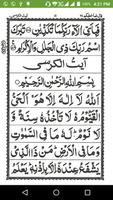 4:21 PM
فَبِاَيِّ اٰلَآءِ رَبِّكُمَا تُكَذِّبٰنِ تَبٰرَكَ
اسْمُ رَبِّكَ ذِي الْجَلٰلِ وَالْاِكْرَامِ
اٰیتُ الکرسی
بِسْمِ اللّٰهِ الرَّحْمٰنِ الرَّحِيْمِ
اَللّٰهُ لَآ اِلٰهَ اِلَّا هُوَ اَلْحَيُّ
الْقَيُّوْمُ لَا تَاْخُذُهٗ سِنَةٌ وَّ
لَا نَوْمٌ لَهٗ مَا فِي السَّمٰوٰتِ
وَمَا فِي الْاَرْضِ مَنْ ذَا الَّذِيْ
يَشْفَعُ عِنْدَهٗٓ اِلَّا بِاِذْنِهٖ